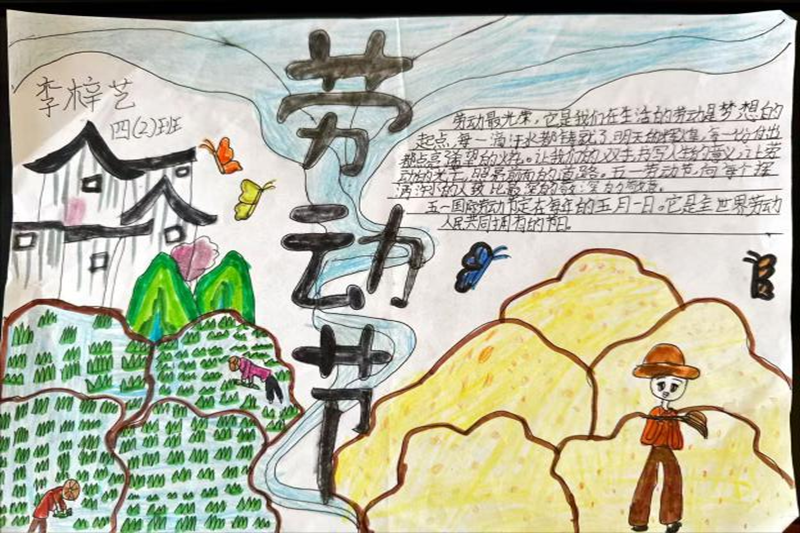 李梓艺
四(2)班
劳动节
劳动最光荣,它是我们在生活的劳动是梦想的
起点,每一滴汗水都铸就了明天的辉煌,每一份付出
都点亮希望的火炬。让我们用双手书写人生的意义,让劳
动的光芒,照亮前面的道路。五一劳动节向每个挥
洒汗水的人致
五一国际劳动节定在每年的五月一日。它是全世界劳动
人民共同拥有的节日。